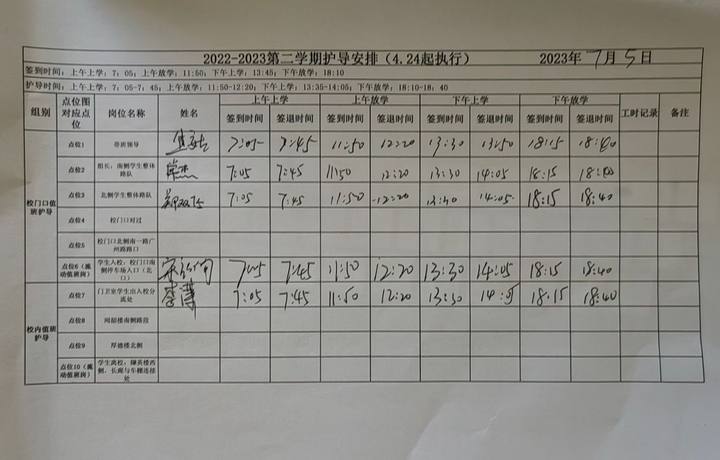 2022-2023第二学期护导安排（4.24起执行） 2023年 7月 5日
签到时间：上午上学：7：05；上午放学：11:50；下午上学：13:45；下午放学：18:10
护导时间：上午上学：7：05-7：45；上午放学：11:50-12:20；下午上学：13:35-14:05；下午放学：18:10-18：40
组别 点位图对应点位 岗位名称 姓名 上午上学 上午放学 下午上学 下午放学 工时记录 备注
签到时间 签退时间 签到时间 签退时间 签到时间 签退时间 签到时间 签退时间
校门口值班护导
点位1 带班领导 7:05 7:45 11:50 12:20 13:30 13:50 18:15 18:40
点位2 组长，南侧学生整体路队 7:05 7:45 11:50 12:20 13:30 14:05 18:15
点位3 北侧学生整体路队 7:05 7:45 11:50 12:20 13:30 14:05 18:15 18:40
点位4 校门口对过
点位5 校门口北侧南一路广州路路口
点位6（流动值班岗） 学生入校，校门口南侧停车场入口（北口） 7:05 7:45 11:50 12:20 13:30 14:05 18:15 18:40
校内值班护导
点位7 门卫室学生出入校分流处 7:05 7:45 11:50 12:20 13:30 14:05 18:15 18:40
点位8 闻韶楼南侧路段
点位9 厚德楼北侧
点位10（流动值班岗） 学生离校，撷英楼西侧，长廊与车棚连接处